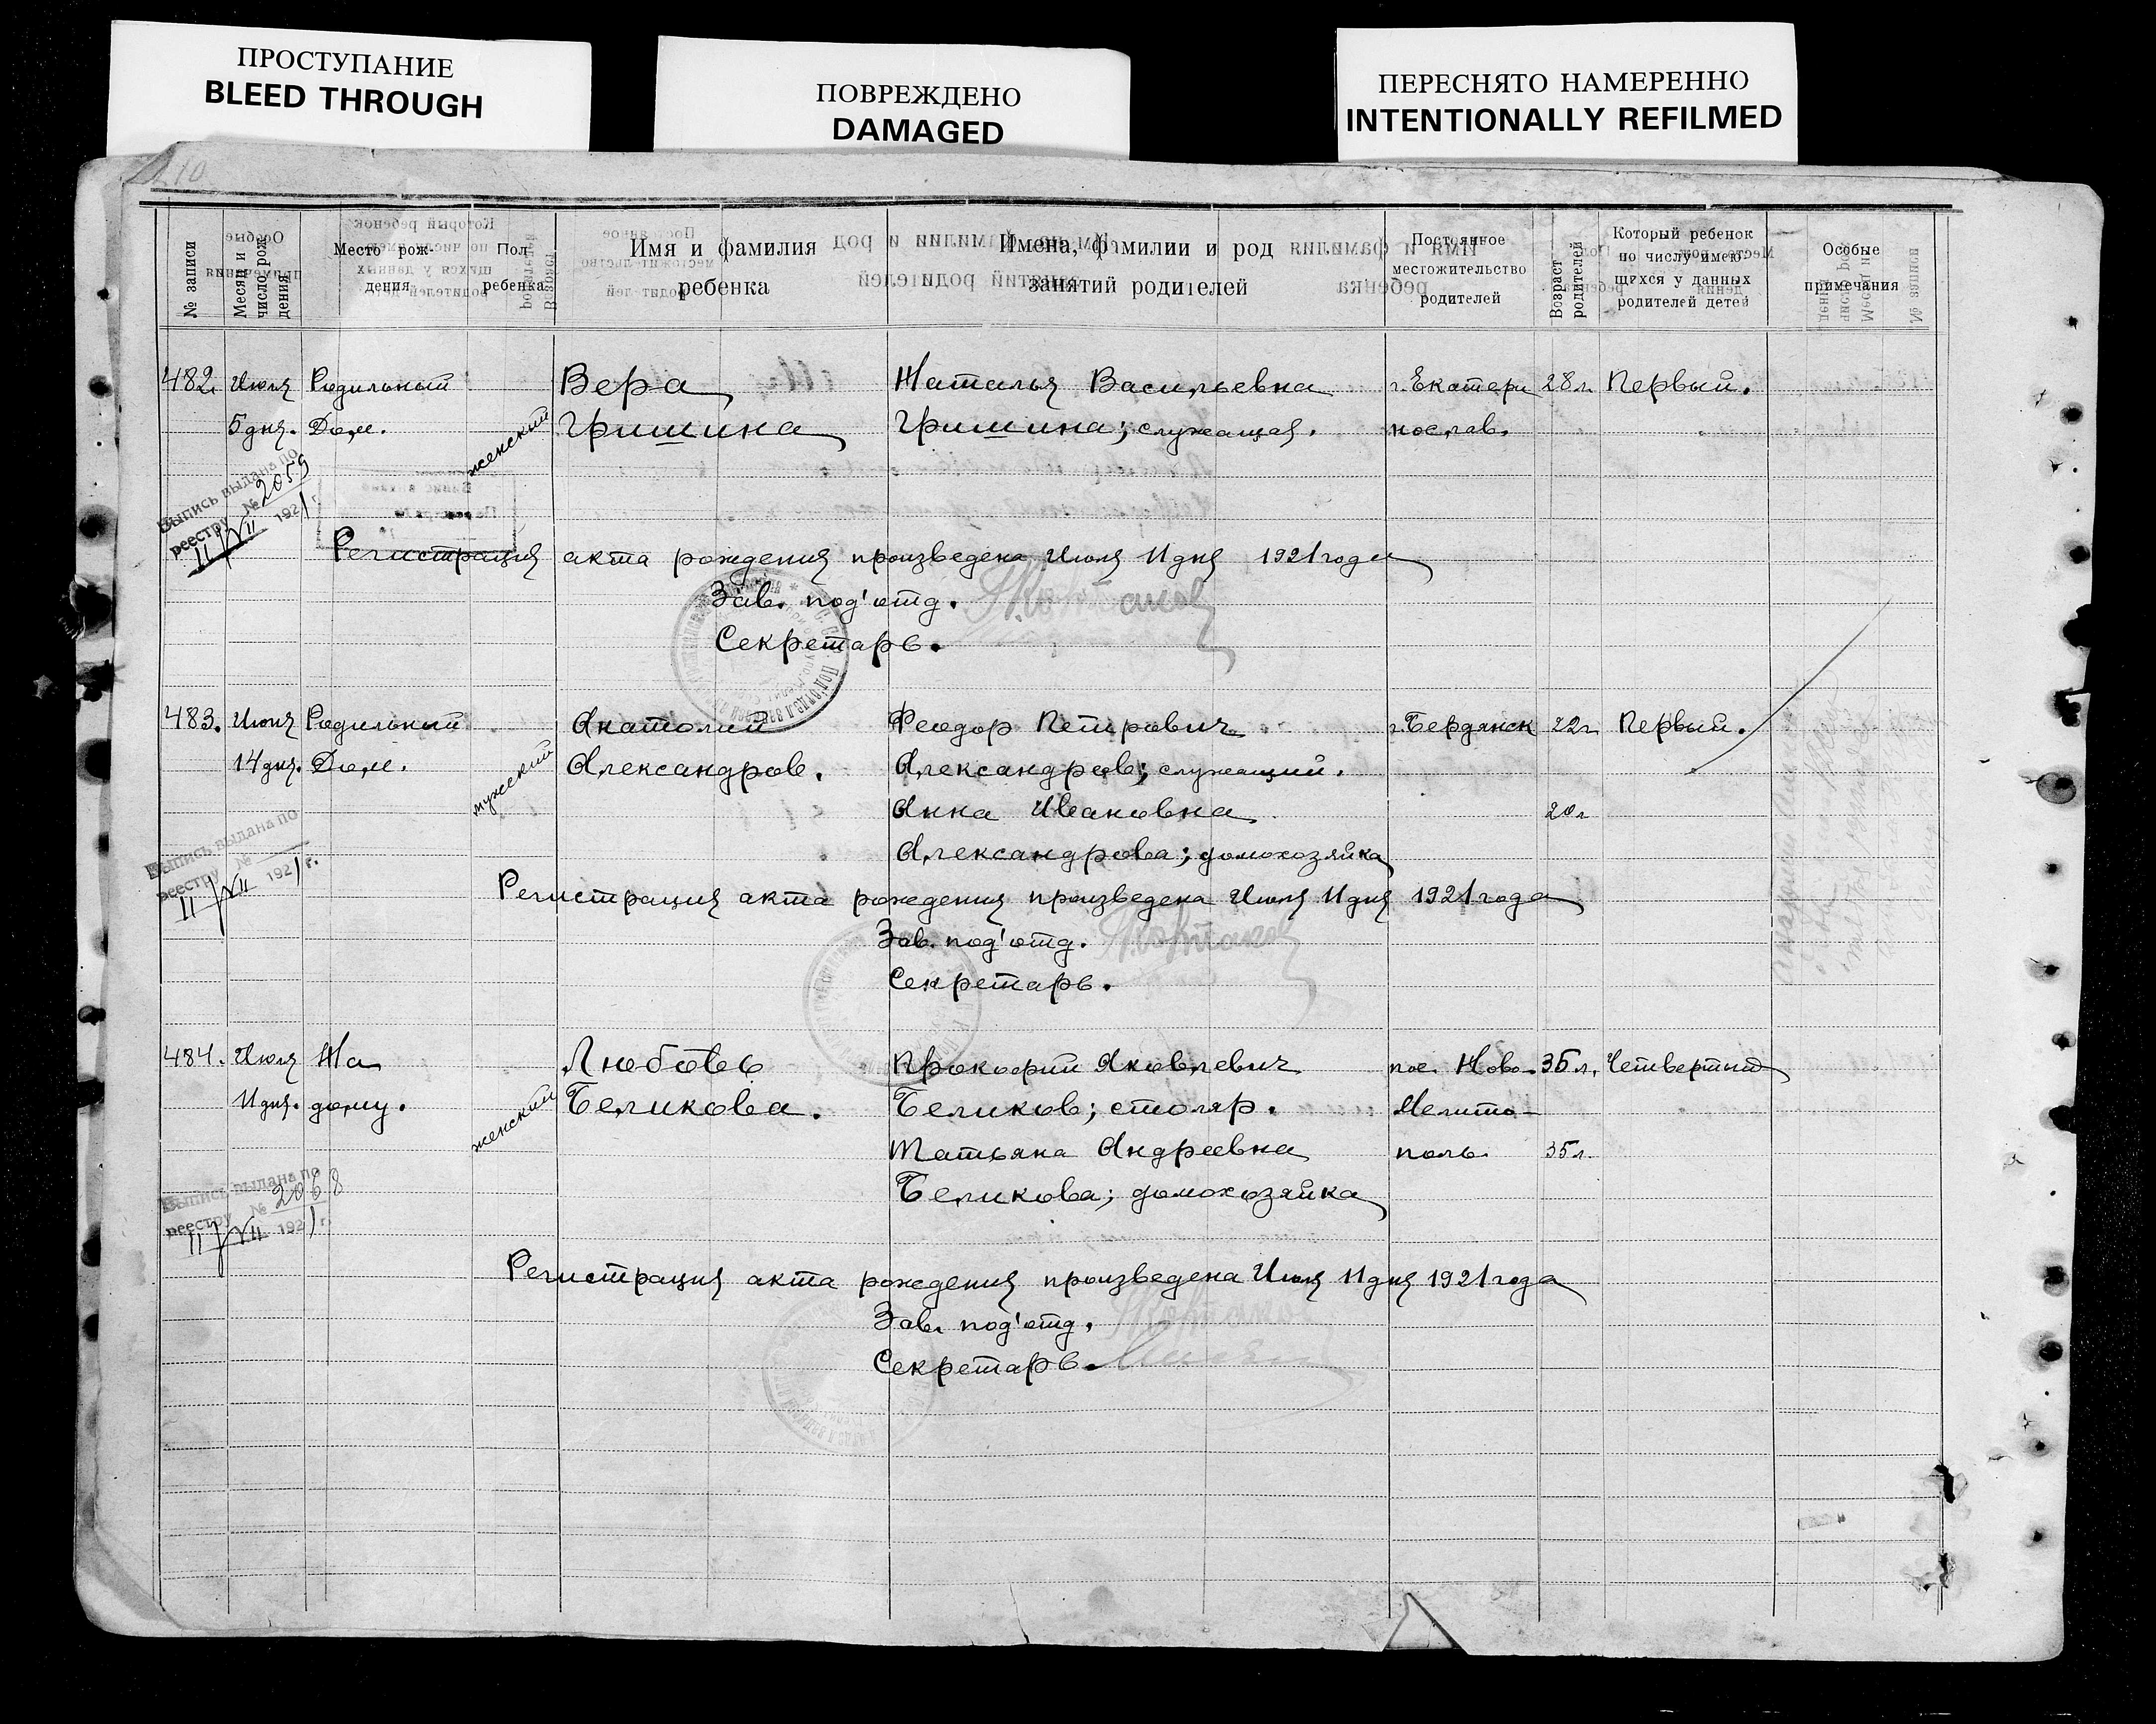 ПРОСТУПАНИЕ
BLEED THROUGH
ПОВРЕЖДЕНО
DAMAGED
ПЕРЕСНЯТО НАМЕРЕННО
INTENTIONALLY REFILMED
№ записи
Месяц и число рождения
Место рож-
дения
Пол
ребенка
Имя и фамилия
ребенка
Имена, фамилии и род
занятий родителей
Постоянное
местожительство
родителей
Возраст
родителей
Который ребенок
по числу имею-
щихся у данных
родителей детей
Особые
примечания
482. Июля Родильный Вера Наталья Васильевна г. Екатери 28 л. Первый.
5 дня. Дом. женский Гришина Гришина; служащая. нослав.
Выпись выдана по
реестру № 2059
11/VII 1921 г.
Регистрация акта рождения произведена Июля 11 дня 1921 года
Зав. под'отд.
Секретарь.
483. Июня Родильный Анатолий Феодор Петрович г. Бердянск 22 г. Первый.
14 дня. Дом. мужеский Александров. Александров; служащий.
Анна Ивановна 20 л
Александрова; домохозяйка
Выпись выдана по
реестру №
11/VII 1921 г.
Регистрация акта рождения произведена Июля 11 дня 1921 года
Зав. под'отд.
Секретарь.
484. Июля На Любовь Прокофий Яковлевич пос. Ново- 35 л. Четвертый
11 дня. дому. женский Беликова. Беликов; столяр. Мелито-
Татьяна Андреевна поль 35 л.
Беликова; домохозяйка
Выпись выдана по
реестру № 2068
11/VII 1921 г.
Регистрация акта рождения произведена Июля 11 дня 1921 года
Зав. под'отд.
Секретарь.